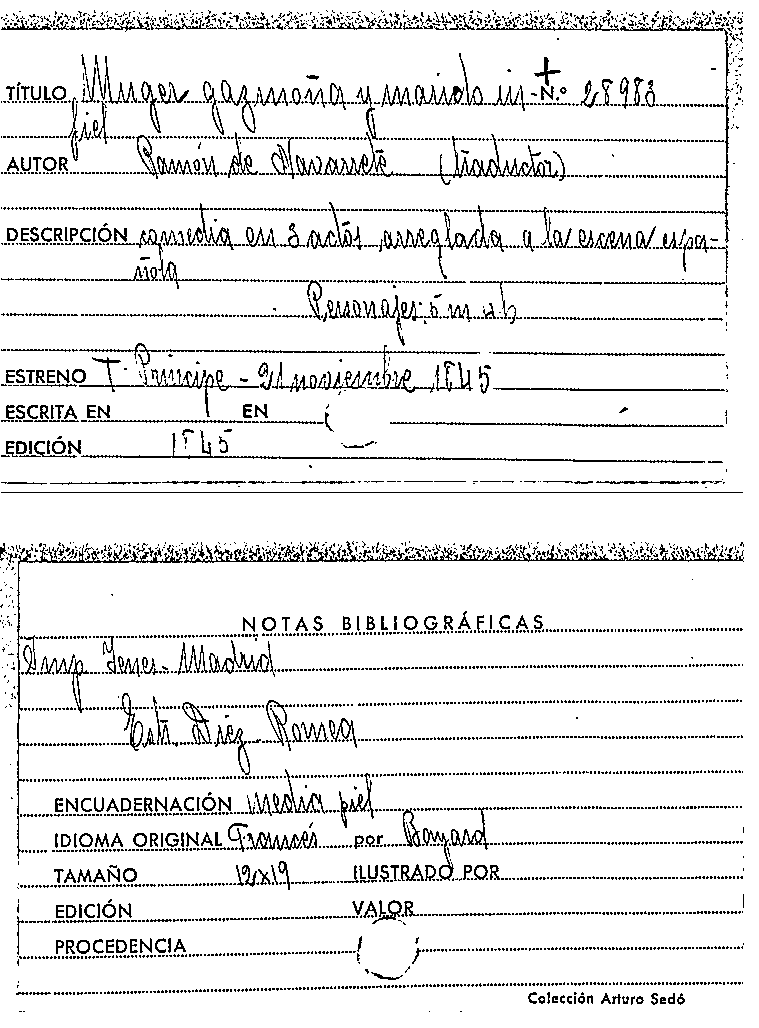 TÍTULO Muger gazmoña y marido in- N.º 28983
fiel
AUTOR Ramón de Navarrete (traductor)
DESCRIPCIÓN comedia en 3 actos, arreglada a la escena espa-
ñola
Personajes: 5 m 4 h
ESTRENO T. Príncipe - 21 noviembre 1845
ESCRITA EN EN
EDICIÓN 1845
NOTAS BIBLIOGRÁFICAS
Imp Yenes - Madrid
Estr. Díez - Romea
ENCUADERNACIÓN media piel
IDIOMA ORIGINAL Francés por Bayard
TAMAÑO 12x19 ILUSTRADO POR
EDICIÓN VALOR
PROCEDENCIA
Colección Arturo Sedó